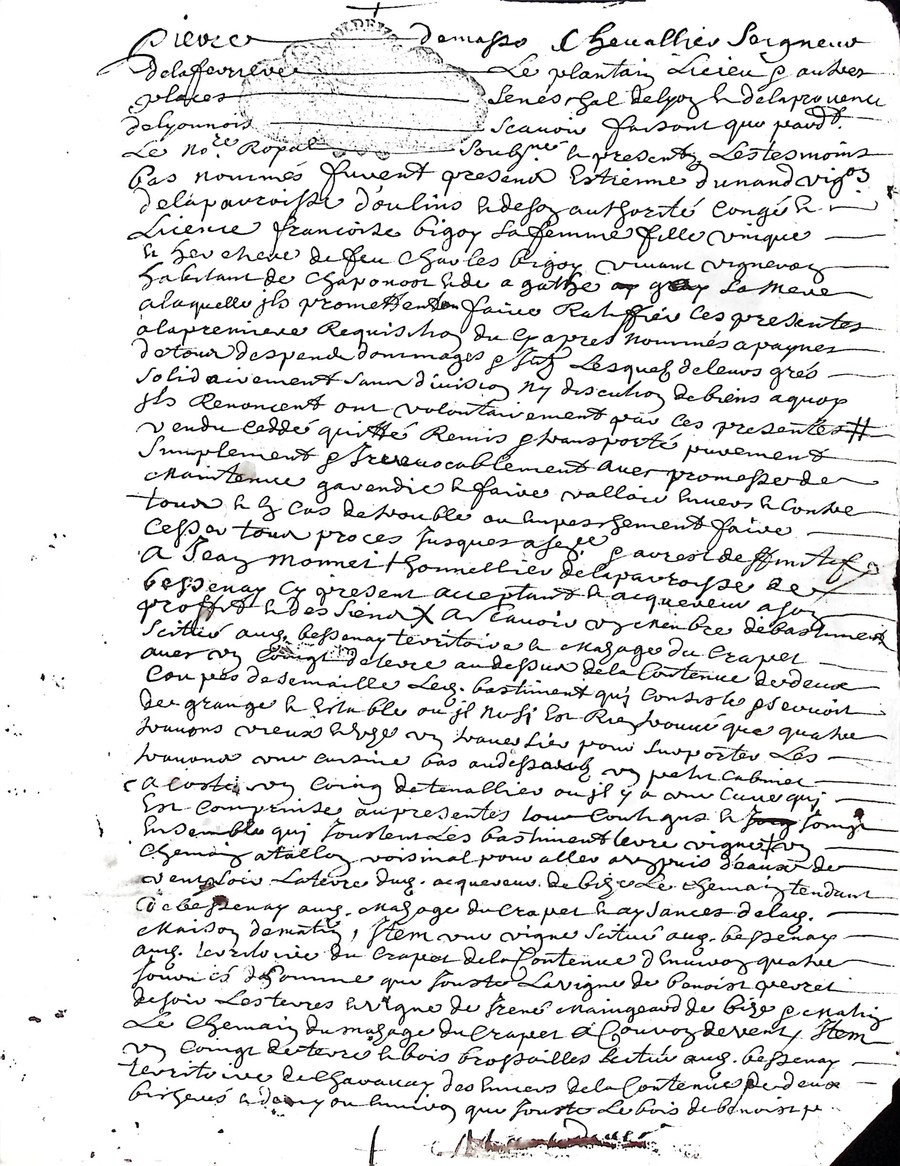 Pierre demasso Chevallier Seigneur
delaferriere Le plantain Licieu & autres
places Seneschal delyon & delaprovence
delyonnois Scavoir faisons que pardt.
Le no.re Royal soubs.né & presentz Les tesmoins
bas nommés furent presens Estienne dunand vig.on
delaparroisse d'oulins & deson authorité congé &
Licence francoise bigoy sa femme fille unique
& heretiere de feu Charles bigoy vivant vigneron
habitant de chaponost & de agathe gay sa mere
a laquelle jls promettent faire Ratiffier Ces presentes
alapremiere Requisition du Cy apres nommés apaynes
detous despends dommages & Lesquels deleurs grés
solidairement sans division ny discution debiens aquoy
jls Renoncent ont volontairement par ces presentes #
vendu Ceddé quitté Remis & transporté purement
simplement & jrrevocablement avec promesse de
Maintenir garendir & faire valloir Envers & Contre
tous & En cas de trouble ou Empeschement faire
Cesser tous proces jusques a & arrest deffinitif
A Jean monnet + thonnellier delaparroisse de
bessenay Cy present acceptant & acquereur a soy
proffit & des siens X A Scavoir un Membre debastiment
scitué aud. bessenay territoire & Masage du Crapet
avec un Coingt deterre au dessus dela Contenue dedeux
Coupés desemaille Led. bastiment qui Consiste &
de grange & Estable ou jl ny Est Rien trouvé que quatre
travons vieux & un travesier pour supporter Les
travons une cuisine bas audessoub un petit Cabinet
a costé un Coing detenallier ou jl y a une Cuve qui
Est comprise aux presentes tous Contigus &
Ensemble qui joustent Les bastiment terre vigne + un
chemin atallon voisinal pour aller aux puis d'eaux de
vent soir La terre dud. acquereur de bize Le chemin tendant
de bessenay aud. Masage du Crapet & aysances delad.
Maison dematin, Jtem une vigne scitué aud. bessenay
aud. territoire du Crapet dela Contenue d'Environ quatre
d'homme que jouste La vigne de benoist perret
desoir Les terres & vigne de Mainegeard de bize & Matin
Le chemin du masage du Crapet a Couvoz de vent, Jtem
un Coingt deterre & bois brossailles scitué aud. bessenay
territoire de Chavanay des dela Contenue dedeux
bicherés & demy ou Environ que jouste Le bois de benoist pe